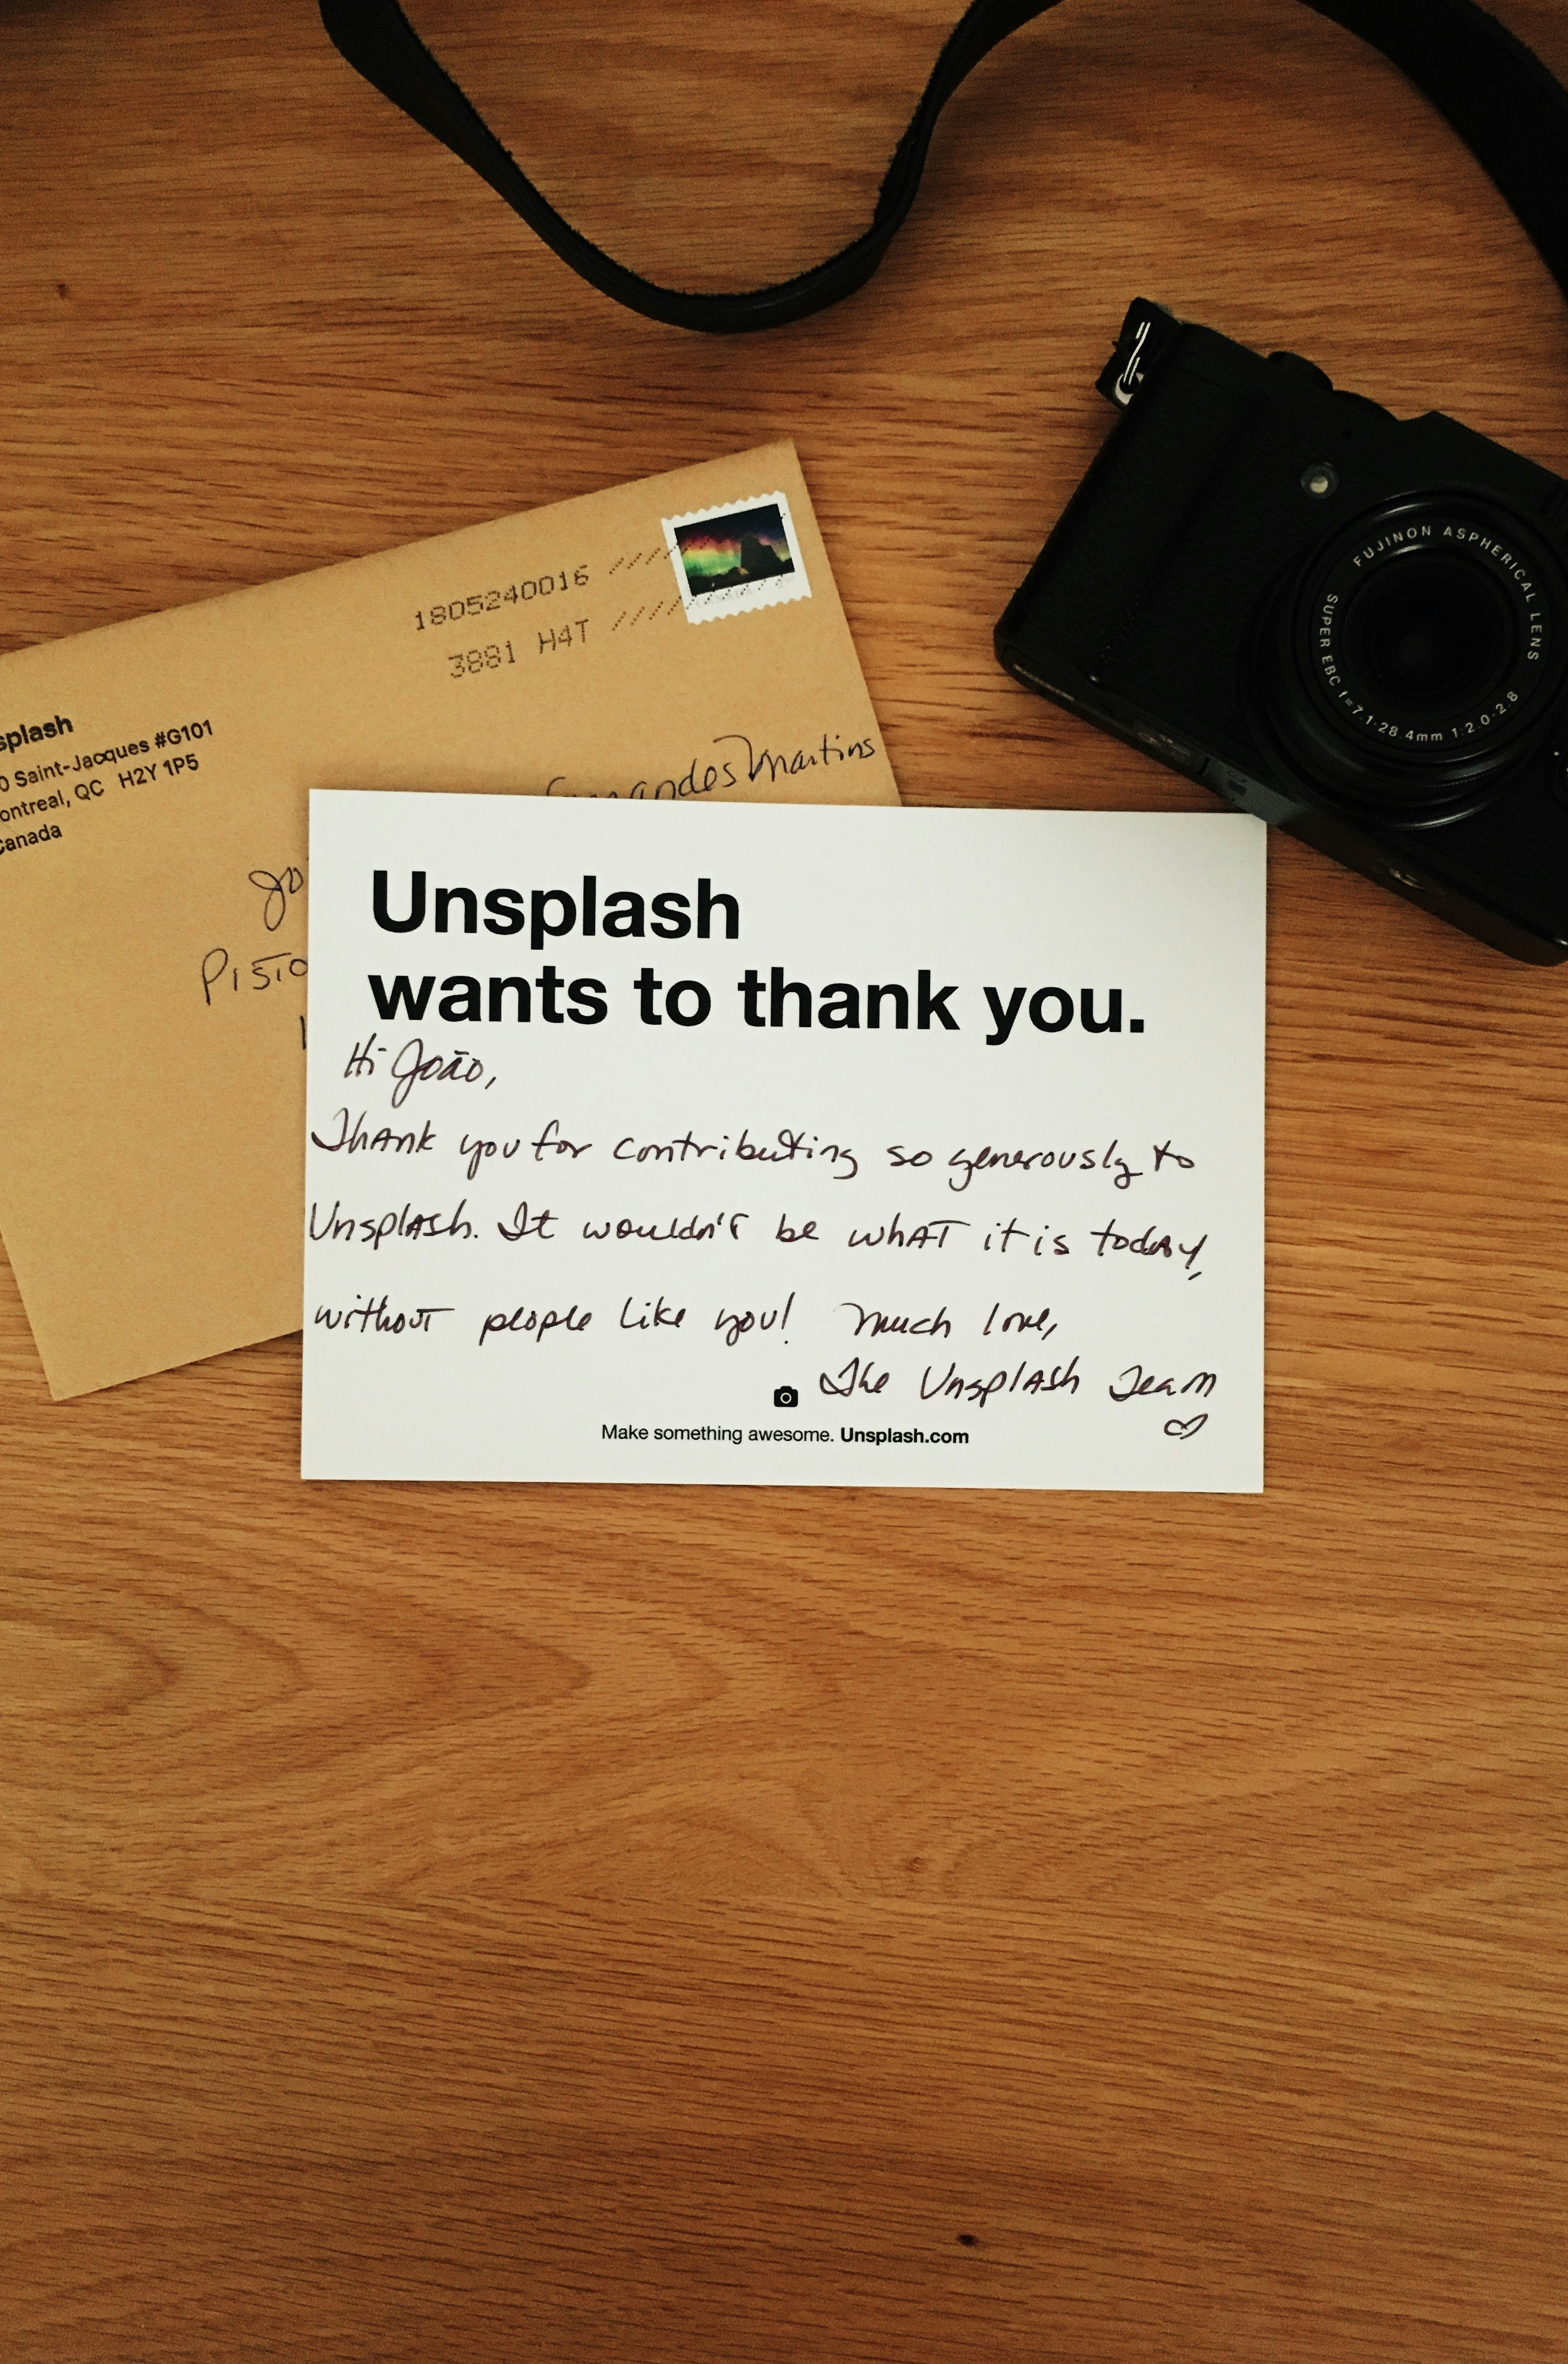 1805240016
3881 H4T
splash
0 Saint-Jacques #G101
ontreal, QC H2Y 1P5
Canada
Martins
Unsplash
wants to thank you.
Hi João,
Thank you for contributing so generously to
Unsplash. It wouldn't be what it is today,
without people like you! Much love,
The Unsplash Team
Make something awesome. Unsplash.com
FUJINON ASPHERICAL LENS
SUPER EBC f=7.1-28.4mm 1:2.0-2.8